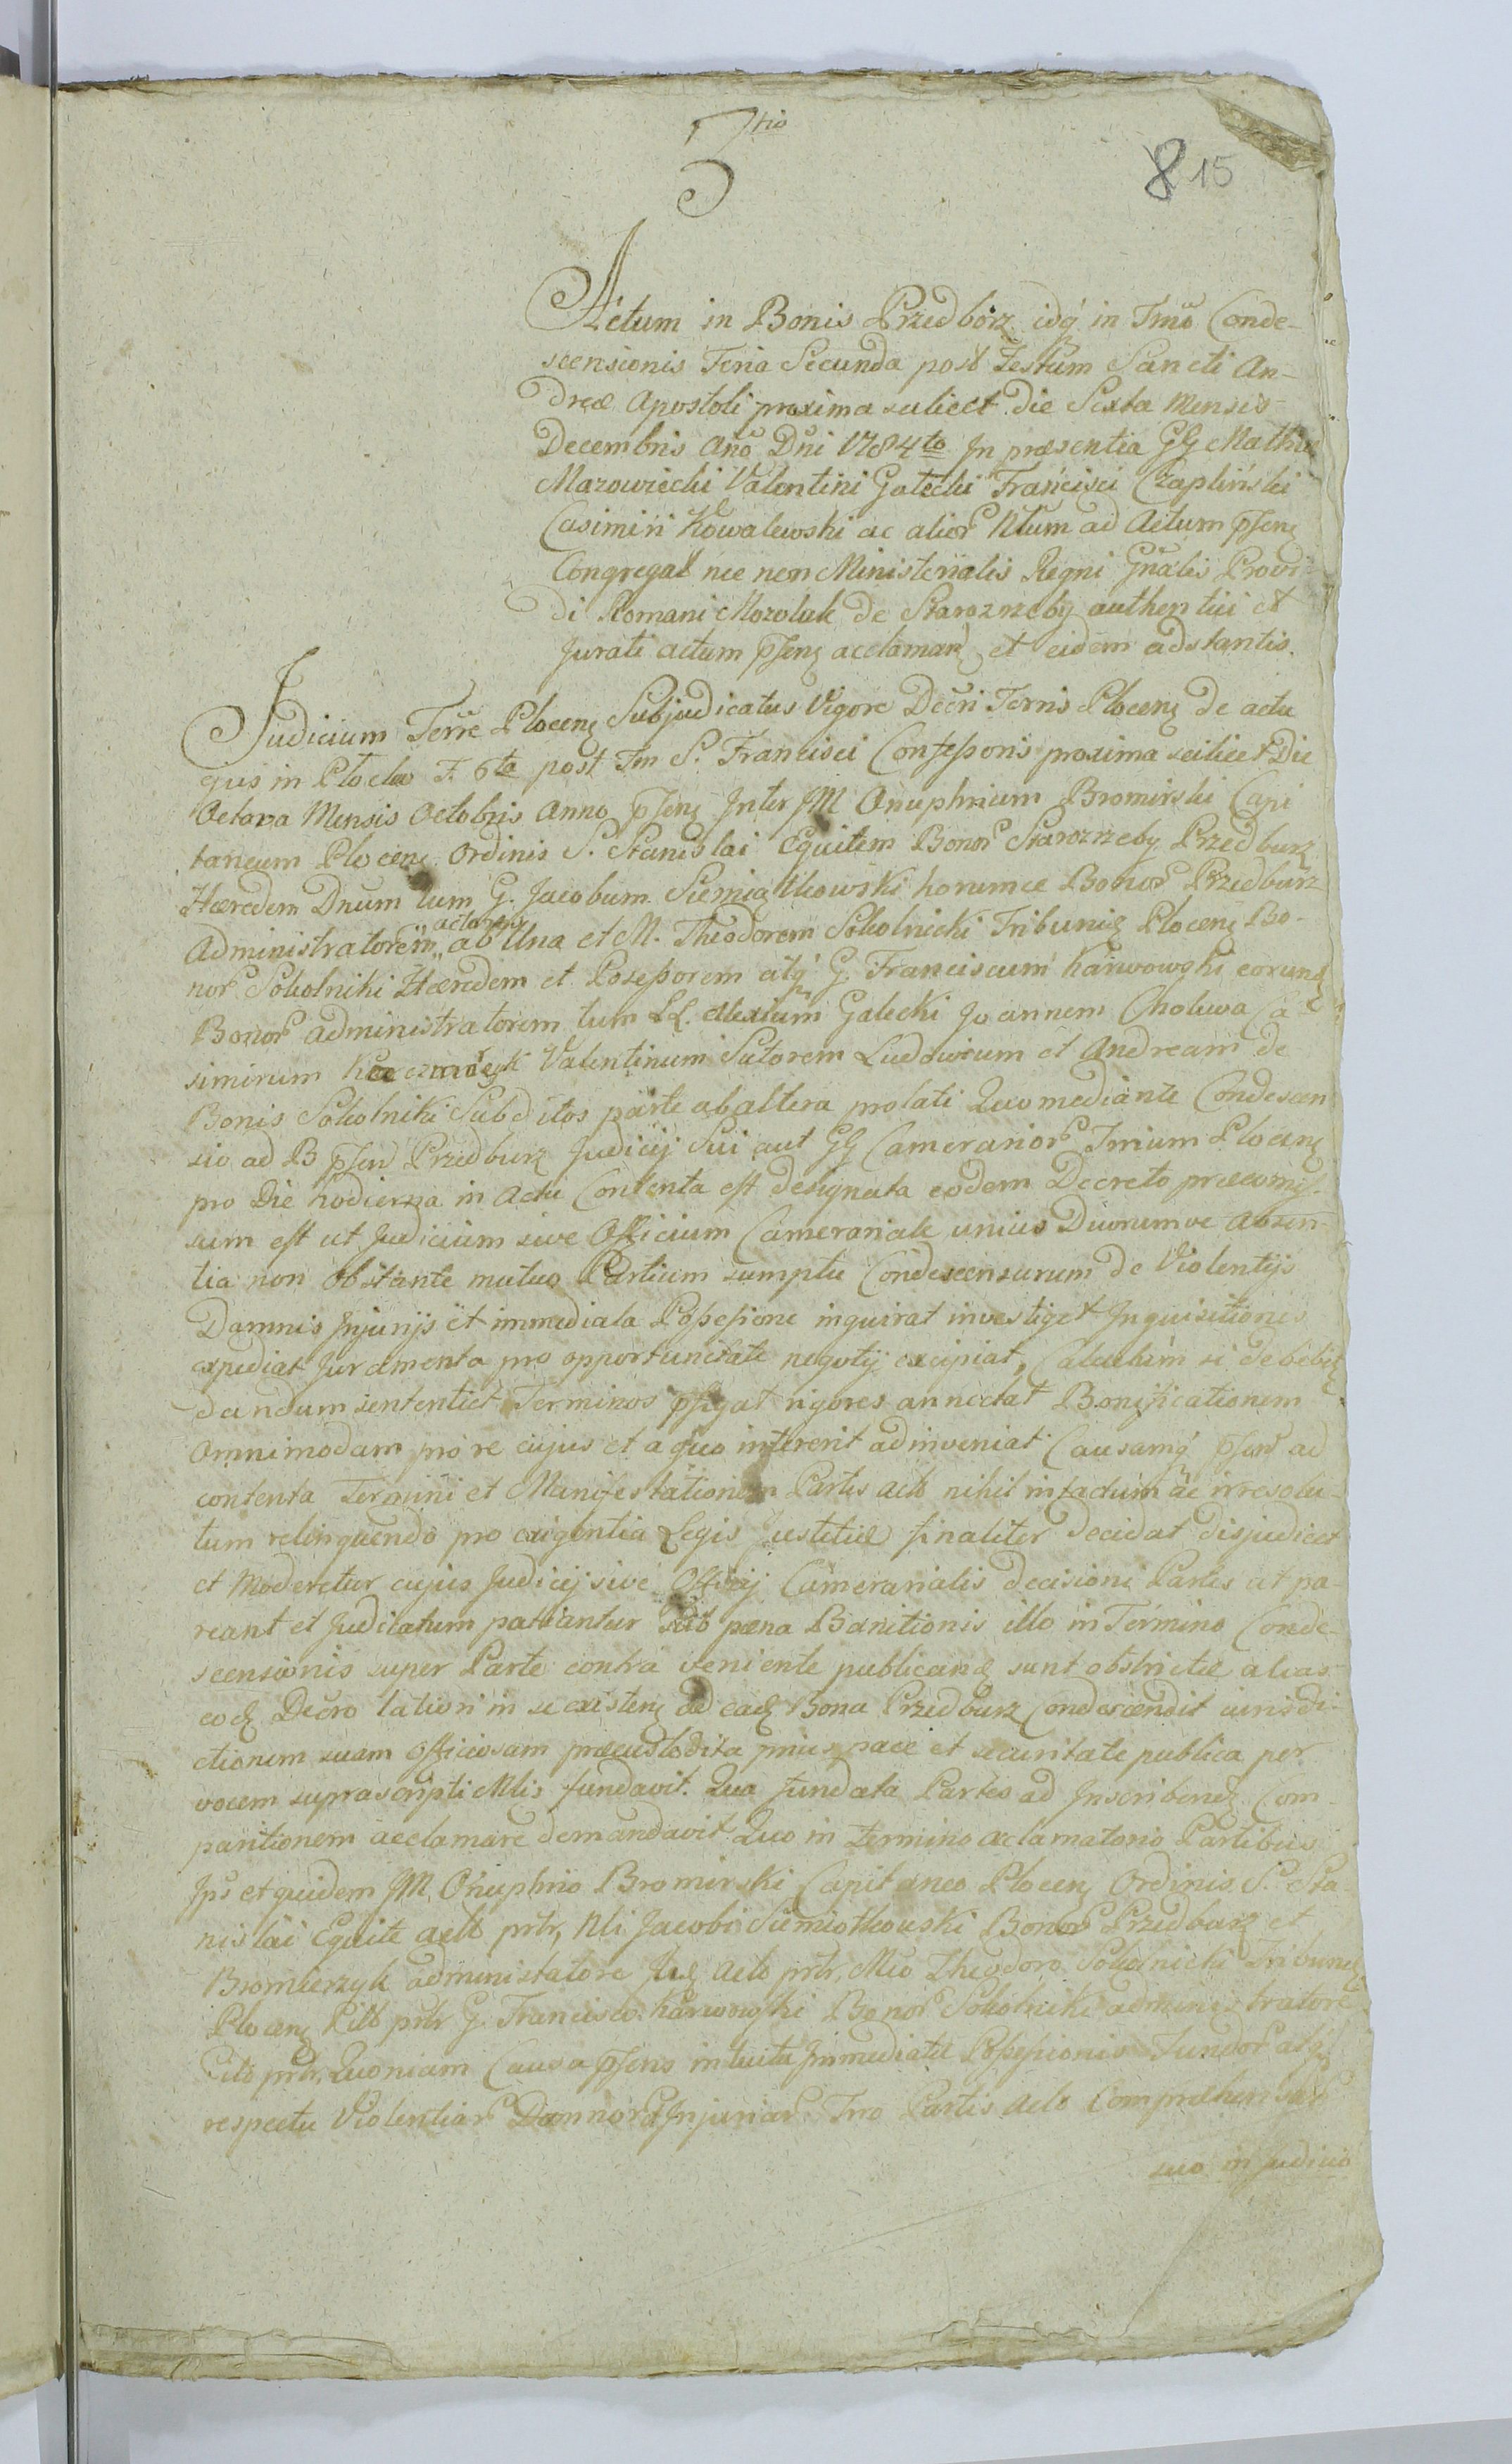 3tio
8 15
Actum in Bonis Przedbórz idq́ in Tmo Conde-
scensionis Feria Secunda post Festum Sancti An-
dreæ Apostoli proxima scilicet die Sexta Mensis
Decembris Ano Dni 1784to In præsentia GG Mathiæ
Mazowiecki Valentini Gałecki Francisci Czapliński
Casimiri Kowalewski ac alior Nlium ad Actum pſenę
Congregat nec non Ministerialis Regni Gnalis Provi-
di Romani Mozoluk de Starozreby authentici et
Jurati actum pſenę acclaman et eidem adstantis.
Judicium Terre Plocenę Subjudicatus Vigore Decri Terris Plocenę de actu
ejus in Plocko F. 6ta post Fm S. Francisci Confeſsoris proxima scilicet Die
Octava Mensis Octobris Anno pſenę Inter JM Onuphrium Bromirski Capi
taneum Plocenę Ordinis S. Stanislai Equitem Bonor Starozreby Przedburz
Hæredem Dnum tum G. Jacobum Siemiątkowski horumce Bonor Przedburz
Administratorem „actores„ ab Una et M. Theodorem Sokolnicki Tribunię Plocenę Bo-
nor Sokolniki Hæredem et Poseſsorem atq́ G. Franciscum Karwowski eorund
Bonor administratorem tum LL. Alexium Galecki Joannem Choluwa Ca-
simirum Valentinum Sutorem Ludovicum et Andream de
Bonis Sokolniki Subditos parte ab altera prolati Quo mediante Condescen
sio ad B pſen Przedburz Judicij Sui aut GG Camerarior Trrium Plocenę
pro Die hodierna in Actu Contenta est designata eodem Decreto præcomiſ-
sum est ut Judicium sive Officium Camerariale unius Duorumve Absen-
tia non Obstante mutuo Partium sumptu Condescensurum de Violentijs
Damnis Injurijs et immediata Poſseſsione inquirat investiget Inquisitiones
expediat Juramenta pro opportunitate negotij excipiat, Calculum si debebit
dandum sententiet Terminos pfigat rigores annectat Bonificationem
Omnimodam pro re cujus et a quo intererit adinveniat Causamq́ pſen ad
contenta Termini et Manifestationem Partis acto nihil intactum ac irresolu-
tum relinquendo pro exigentia Legis Justitiæ finaliter decidat disjudicet
et Moderetur cujus Judicij sive Officij Camerarialis decisioni Partes ut pa-
reant et Judicatum patiantur sub pæna Banitionis illo in Termino Conde-
scensionis super Parte contra veniente publicanę sunt obstrictæ alias
eodę Decro latiori in se existenę ad eadę Bona Przedburz Condescendit jurisdi-
ctionem suam Officiosam præcustodita prius pace et securitate publica per
vocem suprascripti Mlis fundavit. Qua fundata Partes ad Inscribendę Com-
paritionem acclamare demandavit Quo in Termino acclamatorio Partibus
Ips et quidem JM Onuphrio Bromirski Capitaneo Plocenę Ordinis S. Sta
nislai Equite acto prtr, Nli Jacobi Siemiątkowski Bonor Przedburz et
Bromierzyk administratore acto prtr, Mco Theodoro Sokolnicki Tribunię
Plocenę Cito prtr G. Francisco Karwowski Bonor Sokolniki administratore
Cito prtr, Quoniam Causa pſens intuitu Immediatæ Poſseſsionis Fundor atq́
respectu Violentiar Damnor Injuriar Tno Partis acto Comprehensar
suo in Judicio